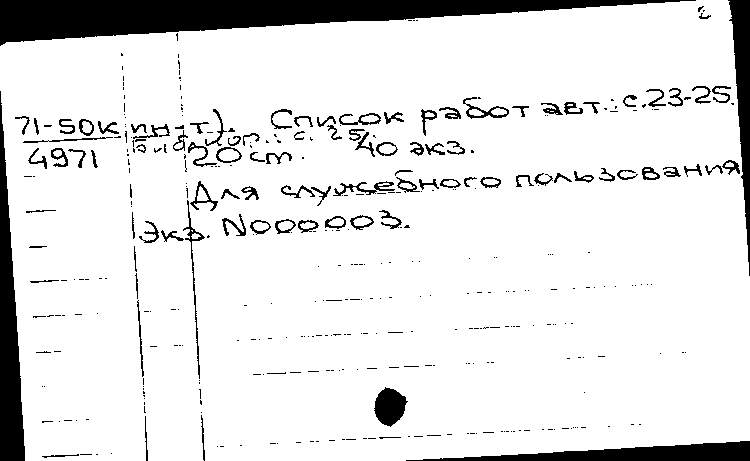 2
71-50к ин-т). Список работ авт.: с. 23-25.
Библиогр.: с. 25.
4971 20 см. 40 экз.
Для служебного пользования
Экз. N000003.